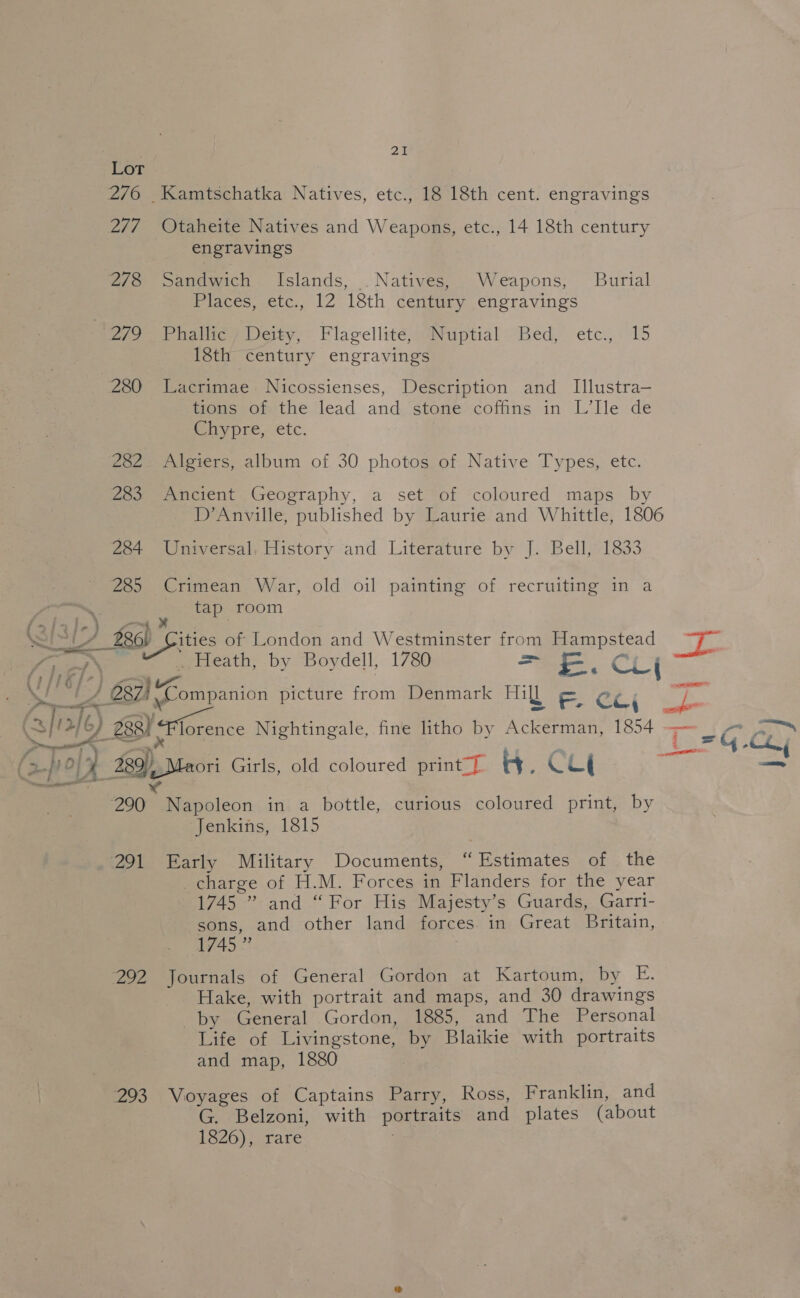 21
LOT
276 Kamtschatka Natives, etc., 18 18th cent. engravings
277 Otaheite Natives and Weapons, etc., 14 18th century
engravings
278 Sandwich Islands, Natives, Weapons, Burial
Places, etc., 12 18th century engravings
279 Phallic Deity, Flagellite, Nuptial Bed, etc., 15
18th century engravings
280 Lacrimae Nicossienses, Description and Illustra-
tions of the lead and stone coffins in L'Ile de
Chypre, etc.
282 Algiers, album of 30 photos of Native Types, etc.
283 Ancient Geography, a set of coloured maps by
D'Anville, published by Laurie and Whittle, 1806
284 Universal History and Literature by J. Bell, 1833
285 Crimean War, old oil painting of recruiting in a
tap room
286 Cities of London and Westminster from Hampstead
Heath, by Boydell, 1780
287 Companion picture from Denmark Hill
288 Florence Nightingale, fine litho by Ackerman, 1854
289 Maori Girls, old coloured print
290 Napoleon in a bottle, curious coloured print, by
Jenkins, 1815
291 Early Military Documents, "Estimates of the
charge of H.M. Forces in Flanders for the year
1745" and "For His Majesty's Guards, Garri-
sons, and other land forces in Great Britain,
1745"
292 Journals of General Gordon at Kartoum, by E.
Hake, with portrait and maps, and 30 drawings
by General Gordon, 1885, and The Personal
Life of Livingstone, by Blaikie with portraits
and map, 1880
293 Voyages of Captains Parry, Ross, Franklin, and
G. Belzoni, with portraits and plates (about
1826), rare